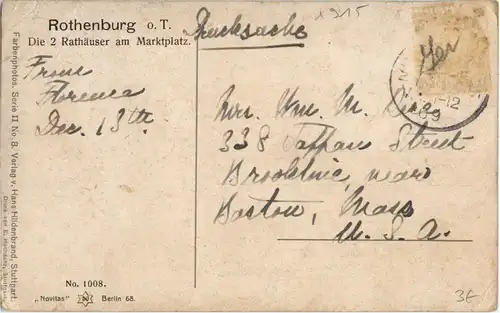 Rothenburg o. T.
Die 2 Rathäuser am Marktplatz.
Drucksache
x915
From
Florence
Dec. 13th
Ger
11-12
09
Mrs. Wm. M.
338 Tappan Street
Brookline, near
Boston, Mass
U. S. A.
Farbenphotos. Serie II No. 8. Verlag v. Hans Hildenbrand, Stuttgart.
No. 1008.
„Novitas" Berlin 68.
3E